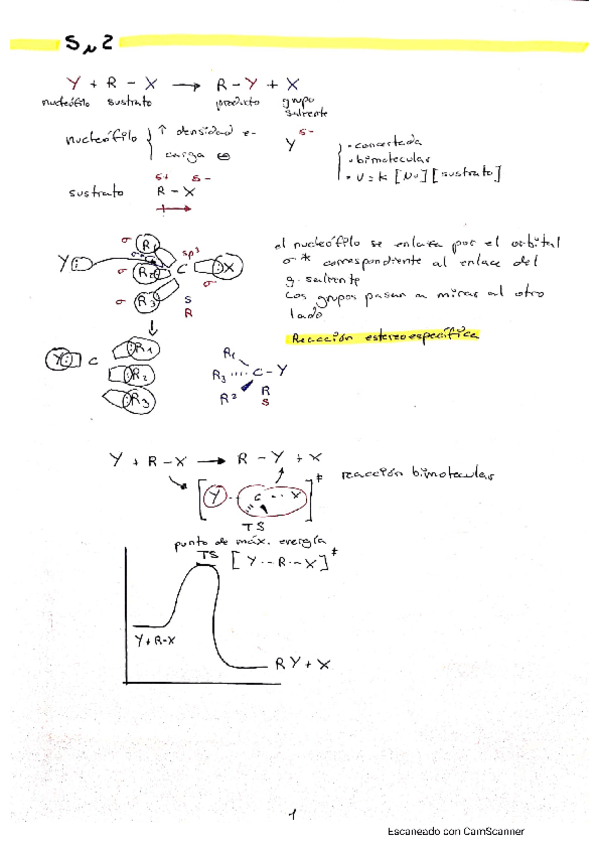 SN2
Y + R - X → R - Y + X
nucleófilo sustrato producto grupo saliente
nucleófilo { ↑ densidad e-
carga ⊖
Y δ-
· concertada
· bimolecular
· v = k [Nu] [sustrato]
sustrato R - X
δ+ δ-
Y: R1 R2 R3 C sp3 :X
σ σ σ σ
S
R
el nucleófilo se enlaza por el orbital
σ* correspondiente al enlace del
g. saliente
Los grupos pasan a mirar al otro
lado
Reacción estereoespecífica
Y: C R1
R2
R3
R1
R3 ···· C - Y
R2 R
S
Y + R - X → R - Y + X
reacción bimolecular
[ Y ··· C ··· X ]‡
TS
punto de máx. energía
TS [ Y ·-- R ·-- X ]‡
Y + R-X
RY + X
1
Escaneado con CamScanner